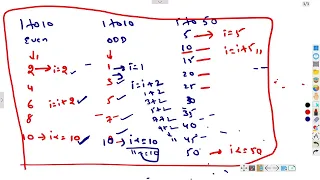 1 to 10 1 to 10 1 to 50
Even ODD 5 → i=5
2 → i=2 1 → i=1 10 → i=i+5
4 3 i=i+2 15
6 i=i+2 5 1+2 20
8 7 3+2 25
10 → i<=10 10 → i<=10 30
35
40
45
50 → i<=50